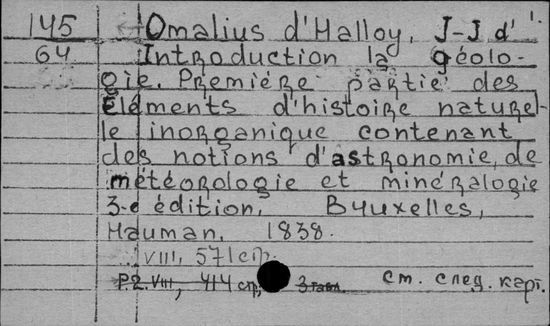 145 Omalius d'Halloy, J-J d'
64 Introduction la géolo-
gie. Première partie des
Éléments d'histoire naturel-
le inorganique contenant
des notions d'astronomie, de
météorologie et minéralogie
3-e édition, Bruxelles,
Hauman, 1838.
VIII, 571 стр.
P2. VIII, 414 стр, 3 табл. см. след. карт.